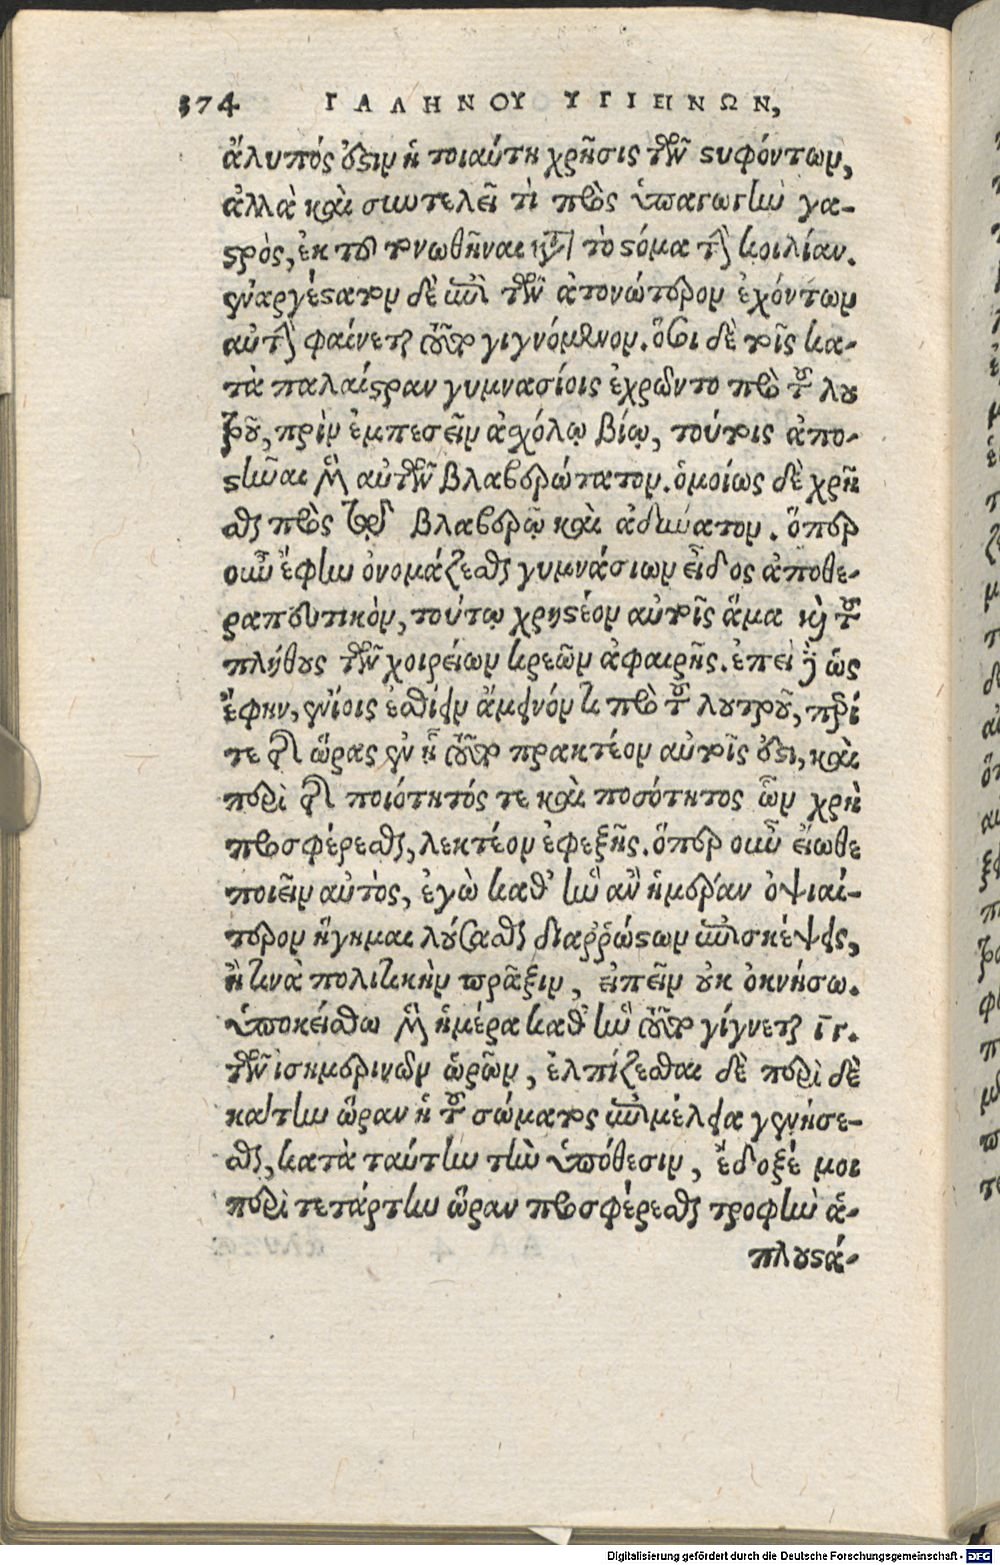 374 ΓΑΛΗΝΟΥ ΥΓΙΕΙΝΩΝ,
ἄλυπός ὅξιν ἡ τοιαύτη χρῆσις τῶν στυφόντων,
ἀλλὰ καὶ συντελεῖ τὶ πρὸς ὑπαγωγὴν γα-
στρὸς, ἐκ τοῦ τονωθῆναι κατὰ τὸ στόμα τὴν κοιλίαν.
ἐναργέστατον δὲ ἐπὶ τῶν ἀτονώτερον ἐχόντων
αὐτὴν φαίνεται τοῦτο γιγνόμενον. ὅσοι δὲ τοῖς κα-
τὰ παλαίστραν γυμνασίοις ἐχρῶντο πρὸ τοῦ λου
τροῦ, πρὶν ἐμπεσεῖν ἀσχόλῳ βίῳ, τούτοις ἀπο-
στῆναι μὲν αὐτῶν βλαβερώτατον. ὁμοίως δὲ χρῆ
σθαι πρὸς τῷ βλαβερῷ καὶ ἀδύνατον. ὅπερ
οὖν ἔφην ὀνομάζεσθαι γυμνάσιων εἶδος ἀποθε-
ραπευτικὸν, τούτῳ χρηστέον αὐτοῖς ἅμα καὶ τοῦ
πλήθους τῶν χοιρείων κρεῶν ἀφαιρῇς. ἐπεὶ δὲ ὡς
ἔφην, ἐνίοις ἐσθίειν ἄμεινόν τι πρὸ τοῦ λουτροῦ, περί
τε τῆς ὥρας ἐν ᾗ τοῦτο πρακτέον αὐτοῖς ὅξι, καὶ
περὶ τῆς ποιότητός τε καὶ ποσότητος ὧν χρὴ
προσφέρεσθαι, λεκτέον ἐφεξῆς. ὅπερ οὖν εἴωθε
ποιεῖν αὐτὸς, ἐγὼ καθ' ἣν ἂν ἡμέραν ὀψιαί-
τερον ἥγημαι λύσασθαι διαῤῥώστων ἐπισκέψεις,
ἢ τινὰ πολιτικὴν πρᾶξιν, εἰπεῖν οὐκ ὀκνήσω.
ὑποκείσθω μὲν ἡμέρα καθ' ἣν τοῦτο γίγνεται ιγ.
τῶν ἰσημερινῶν ὡρῶν, ἐλπίζεσθαι δὲ περὶ δὲ
κάτην ὥραν ἡ τοῦ σώματος ἐπιμέλεια γενήσε-
σθαι, κατὰ ταύτην τὴν ὑπόθεσιν, ἔδοξέ μοι
περὶ τετάρτην ὥραν προσφέρεσθαι τροφὴν ἁ-
πλουστά-
Digitalisierung gefördert durch die Deutsche Forschungsgemeinschaft - DFG